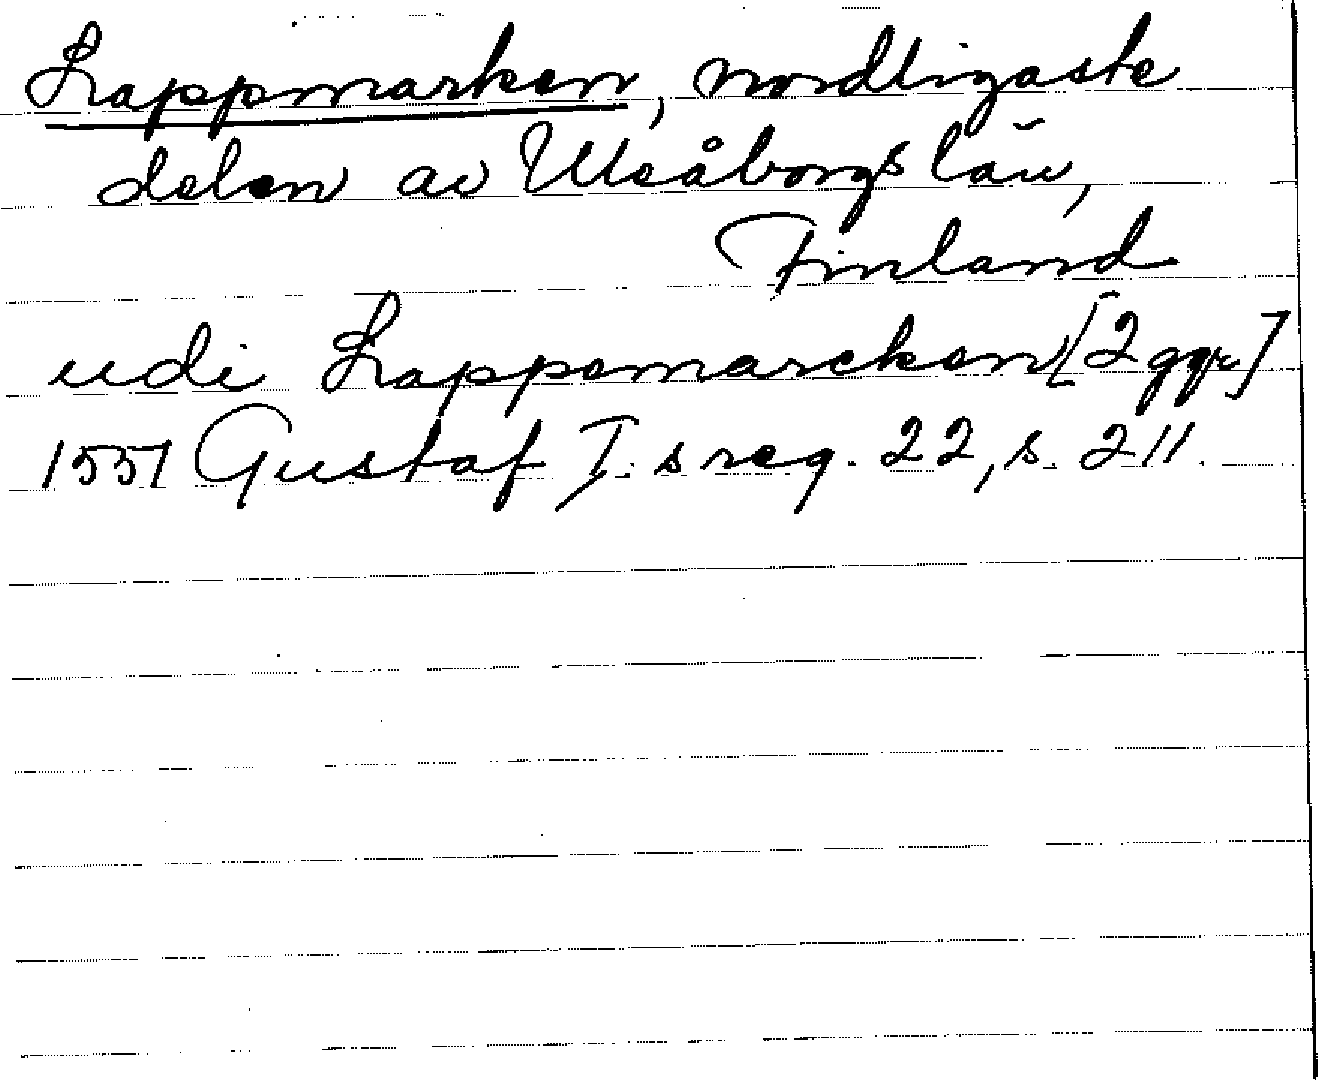 Lappmarken, nordligaste
delen av Uleåborgs län,
Finland
udi Lappemarcken [2 ggr]
1551 Gustaf I.s reg. 22, s. 211.